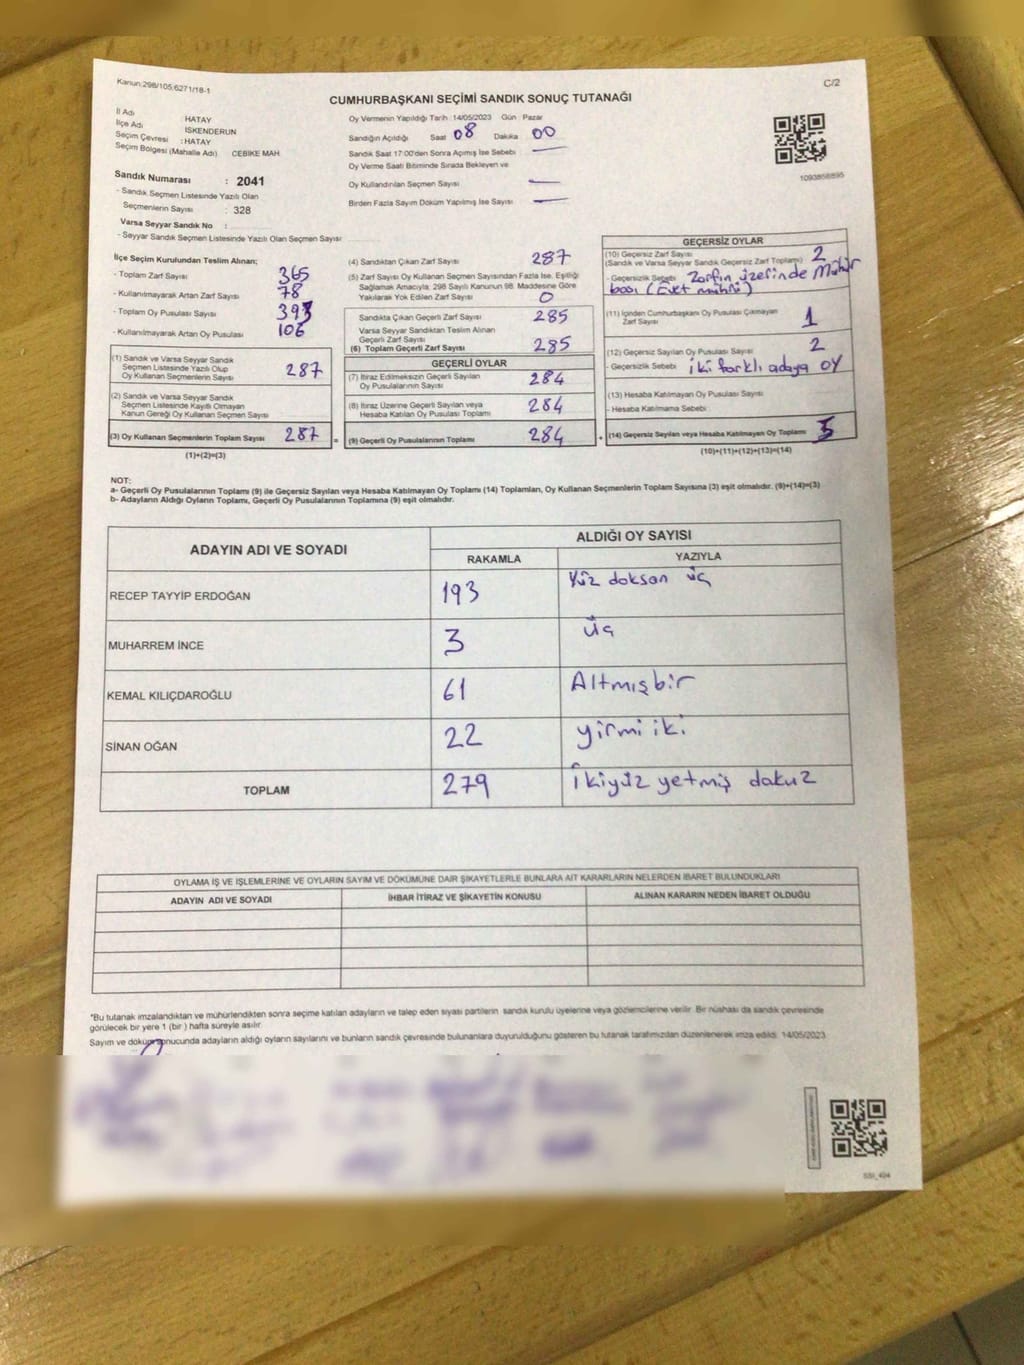 Kanun:298/105,6271/18-1
C/2
CUMHURBAŞKANI SEÇİMİ SANDIK SONUÇ TUTANAĞI
İl Adı HATAY
İlçe Adı İSKENDERUN
Seçim Çevresi :HATAY
Seçim Bölgesi (Mahalle Adı) CEBİKE MAH
Sandık Numarası : 2041
- Sandık Seçmen Listesinde Yazılı Olan
Seçmenlerin Sayısı : 328
Varsa Seyyar Sandık No :
- Seyyar Sandık Seçmen Listesinde Yazılı Olan Seçmen Sayısı
Oy Vermenin Yapıldığı Tarih :14/05/2023 Gün Pazar
Sandığın Açıldığı Saat 08 Dakika 00
Sandık Saat 17:00'den Sonra Açımış İse Sebebi
Oy Verme Saati Bitiminde Sırada Bekleyen ve
Oy Kullandırılan Seçmen Sayısı
Birden Fazla Sayım Döküm Yapılmış İse Sayısı
1093858895
İlçe Seçim Kurulundan Teslim Alınan;
- Toplam Zarf Sayısı 365
- Kullanılmayarak Artan Zarf Sayısı 78
- Toplam Oy Pusulası Sayısı 393
- Kullanılmayarak Artan Oy Pusulası 106
(1) Sandık ve Varsa Seyyar Sandık
Seçmen Listesinde Yazılı Olup
Oy Kullanan Seçmenlerin Sayısı 287
(2) Sandık ve Varsa Seyyar Sandık
Seçmen Listesinde Kayıtlı Olmayan
Kanun Gereği Oy Kullanan Seçmen Sayısı
(3) Oy Kullanan Seçmenlerin Toplam Sayısı 287 =
(1)+(2)=(3)
(4) Sandıktan Çıkan Zarf Sayısı 287
(5) Zarf Sayısı Oy Kullanan Seçmen Sayısından Fazla İse, Eşitliği
Sağlamak Amacıyla; 298 Sayılı Kanunun 98. Maddesine Göre
Yakılarak Yok Edilen Zarf Sayısı 0
Sandıkta Çıkan Geçerli Zarf Sayısı 285
Varsa Seyyar Sandıktan Teslim Alınan
Geçerli Zarf Sayısı
(6) Toplam Geçerli Zarf Sayısı 285
GEÇERLİ OYLAR
(7) İtiraz Edilmeksizin Geçerli Sayılan
Oy Pusulalarının Sayısı 284
(8) İtiraz Üzerine Geçerli Sayılan veya
Hesaba Katılan Oy Pusulası Toplamı 284
(9) Geçerli Oy Pusulalarının Toplamı 284 +
GEÇERSİZ OYLAR
(10) Geçersiz Zarf Sayısı 2
(Sandık ve Varsa Seyyar Sandık Geçersiz Zarf Toplamı)
- Geçersizlik Sebebi Zarfın üzerinde Mühür
bası (Evet mührü)
(11) İçinden Cumhurbaşkanı Oy Pusulası Çıkmayan
Zarf Sayısı 1
(12) Geçersiz Sayılan Oy Pusulası Sayısı 2
- Geçersizlik Sebebi iki farklı adaya oy
(13) Hesaba Katılmayan Oy Pusulası Sayısı
- Hesaba Katılmama Sebebi
(14) Geçersiz Sayılan veya Hesaba Katılmayan Oy Toplamı
(10)+(11)+(12)+(13)=(14)
NOT:
a- Geçerli Oy Pusulalarının Toplamı (9) ile Geçersiz Sayılan veya Hesaba Katılmayan Oy Toplamı (14) Toplamları, Oy Kullanan Seçmenlerin Toplam Sayısına (3) eşit olmalıdır. (9)+(14)=(3)
b- Adayların Aldığı Oyların Toplamı, Geçerli Oy Pusulalarının Toplamına (9) eşit olmalıdır.
ADAYIN ADI VE SOYADI
ALDIĞI OY SAYISI
RAKAMLA YAZIYLA
RECEP TAYYİP ERDOĞAN 193 Yüz doksan üç
MUHARREM İNCE 3 üç
KEMAL KILIÇDAROĞLU 61 Altmışbir
SİNAN OĞAN 22 yirmi iki
TOPLAM 279 İkiyüz yetmiş dokuz
OYLAMA İŞ VE İŞLEMLERİNE VE OYLARIN SAYIM VE DÖKÜMÜNE DAİR ŞİKAYETLERLE BUNLARA AİT KARARLARIN NELERDEN İBARET BULUNDUKLARI
ADAYIN ADI VE SOYADI İHBAR İTİRAZ VE ŞİKAYETİN KONUSU ALINAN KARARIN NEDEN İBARET OLDUĞU
*Bu tutanak imzalandıktan ve mühürlendikten sonra seçime katılan adayların ve talep eden siyasi partilerin sandık kurulu üyelerine veya gözlemcilerine verilir. Bir nüshası da sandık çevresinde
görülecek bir yere 1 (bir ) hafta süreyle asılır.
Sayım ve döküm sonucunda adayların aldığı oyların sayılarını ve bunların sandık çevresinde bulunanlara duyurulduğunu gösteren bu tutanak tarafımızdan düzenlenerek imza edildi. 14/05/2023